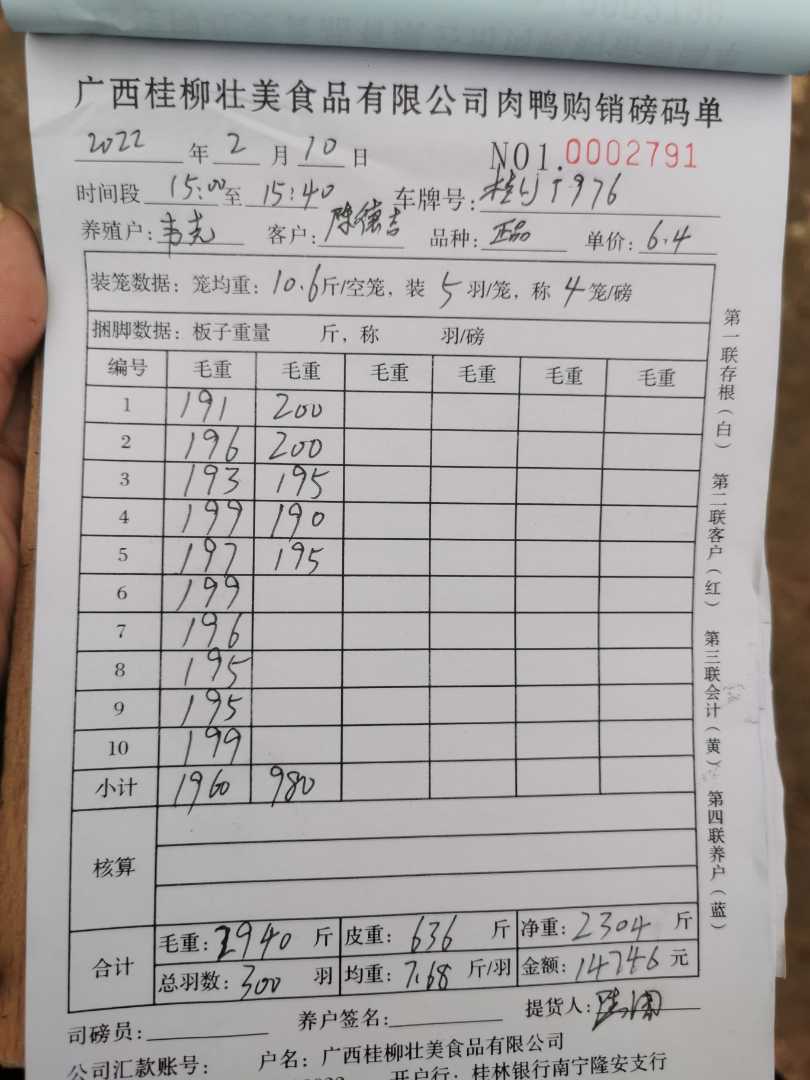 广西桂柳壮美食品有限公司肉鸭购销磅码单
2022 年 2 月 10 日 NO1.0002791
时间段 15:00 至 15:40 车牌号: 976
养殖户: 韦克 客户: 陈德吉 品种: 正品 单价: 6.4
装笼数据: 笼均重: 10.6 斤/空笼, 装 5 羽/笼, 称 4 笼/磅
捆脚数据: 板子重量 斤, 称 羽/磅
编号 毛重 毛重 毛重 毛重 毛重 毛重
1 191 200
2 196 200
3 193 195
4 199 190
5 197 195
6 199
7 196
8 195
9 195
10 199
小计 1960 980
核算
合计 毛重: 2940 斤 皮重: 636 斤 净重: 2304 斤
总羽数: 300 羽 均重: 7.68 斤/羽 金额: 14746 元
司磅员: 养户签名: 提货人:
公司汇款账号: 户名: 广西桂柳壮美食品有限公司
开户行: 桂林银行南宁隆安支行
第一联存根(白) 第二联客户(红) 第三联会计(黄) 第四联养户(蓝)